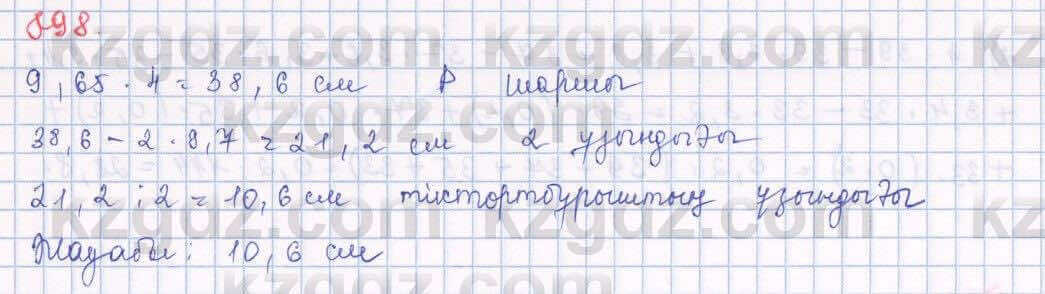 898.
9,65 · 4 = 38,6 см P шаршы
38,6 - 2 · 8,7 = 21,2 см 2 ұзындығы
21,2 : 2 = 10,6 см тіктөртбұрыштың ұзындығы
Жауабы: 10,6 см
kzgdz.com